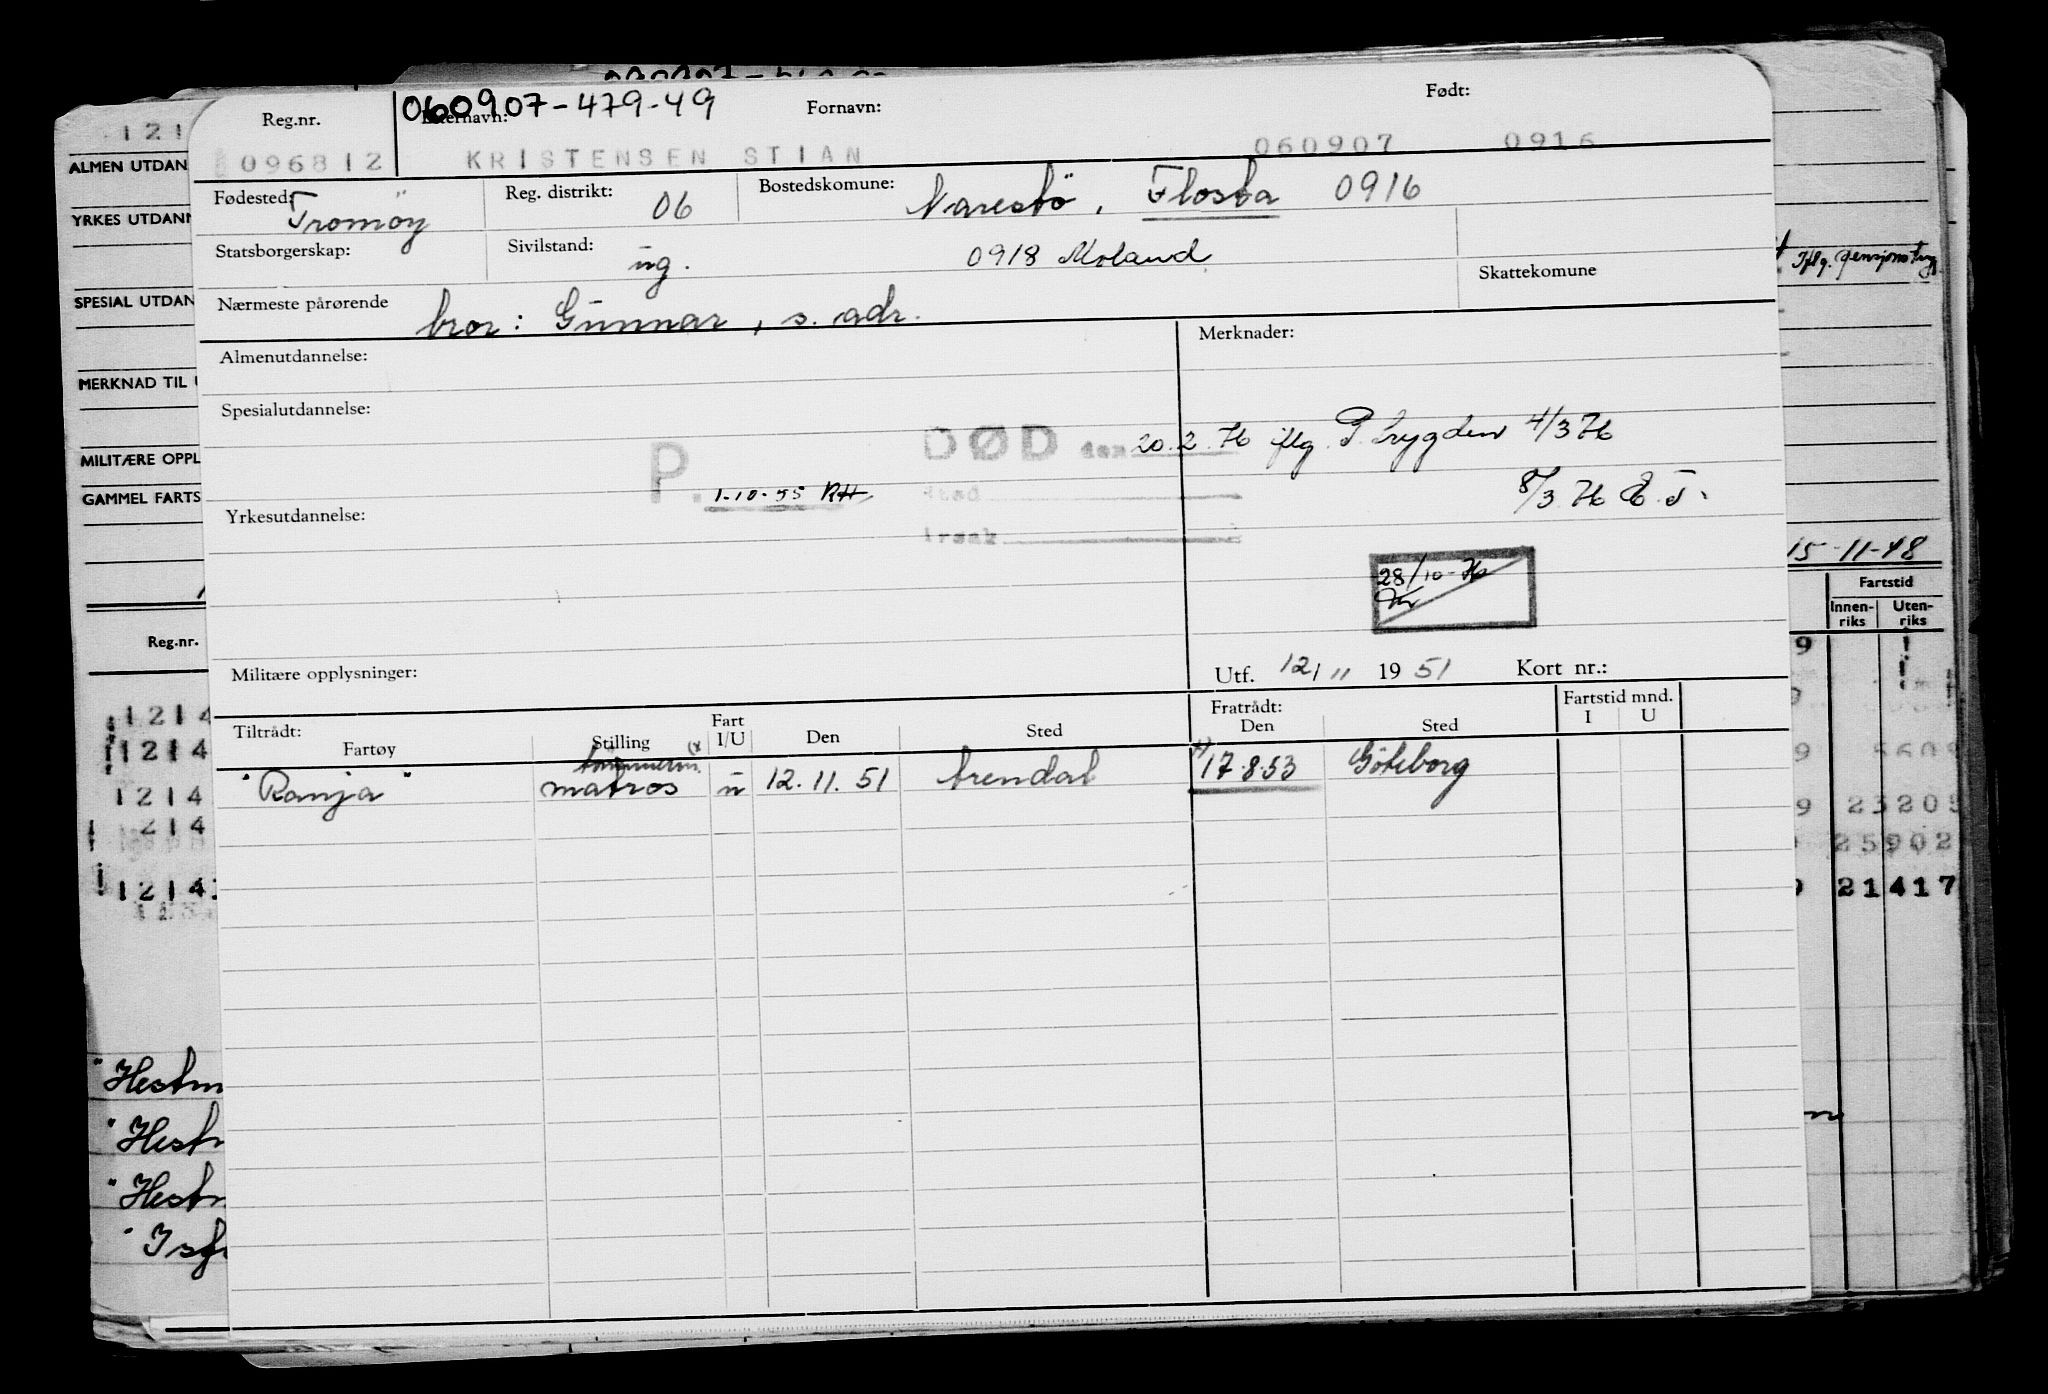 Reg.nr.
060907-479-49
Etternavn:
Fornavn:
Født:
096812
KRISTENSEN STIAN
060907
0916
Fødested: Tromöy
Reg. distrikt: 06
Bostedskomune: Narestö, Flosta 0916
Statsborgerskap:
Sivilstand: ug.
0918 Moland
Skattekomune
Nærmeste pårørende bror: Gunnar, s. adr.
Almenutdannelse:
Merknader:
Spesialutdannelse:
P. 1-10-55 RH
DØD den 20.2.76 iflg. P. trygden 4/3 76
Sted
8/3 76 E.T.
Årsak
Yrkesutdannelse:
28/10-76
Militære opplysninger:
Utf. 12/11 1951 Kort nr.:
Tiltrådt:
Fartøy
Stilling
Fart
I/U
Den
Sted
Fratrådt:
Den
Sted
Fartstid mnd.
I
U
tömmerm. x)
"Ranja" matros u 12.11.51 Arendal x) 17.8.53 Göteborg
1 2 1
ALMEN UTDAN
YRKES UTDANN
SPESIAL UTDAN
MERKNAD TIL U
MILITÆRE OPPL
GAMMEL FARTS
Reg.nr.
1214
1214
1214
214
1214
"Hestm
"Hest
"Hestm
"Isf
Iflg. pensjonstryg
15-11-48
Fartstid
Innen-
riks
Uten-
riks
9
9 5609
9 23205
25902
9 21417